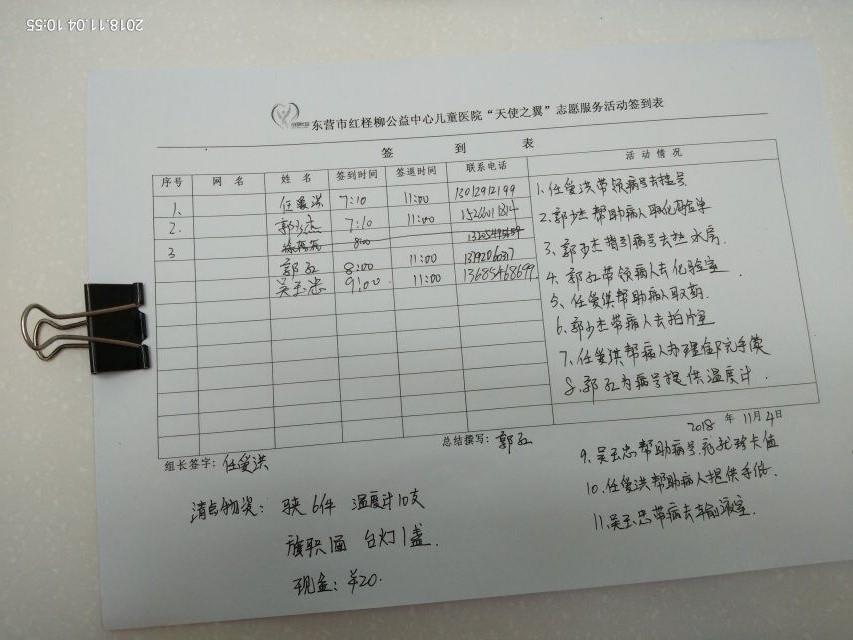 2018.11.04 10:55
东营市红柽柳公益中心儿童医院“天使之翼”志愿服务活动签到表
签 到 表
序号 网 名 姓 名 签到时间 签退时间 联系电话 活 动 情 况
1、 任爱洪 7:10 11:00 13012912199
2. 郭少杰 7:10 11:00
3 8:00
郭红 8:00 11:00
吴玉忠 9:00 11:00 13685468699
1、任爱洪带领病号去挂号
2、郭少杰帮助病人取化验单
3、郭少杰指引病号去热水房.
4、郭红带领病人去化验室.
5、任爱洪帮助病人取药.
6、郭少杰带病人去拍片室
7、任爱洪帮病人办理住院手续
8、郭红为病号提供温度计.
2018 年 11月4日
组长签字：任爱洪
总结撰写：郭红
9、吴玉忠帮助病号 就诊卡值
10、任爱洪帮助病人提供手纸.
11、吴玉忠带病去输液室.
清点物资： 6件 温度计10支
旗帜1面 台灯1盏.
现金：￥20.